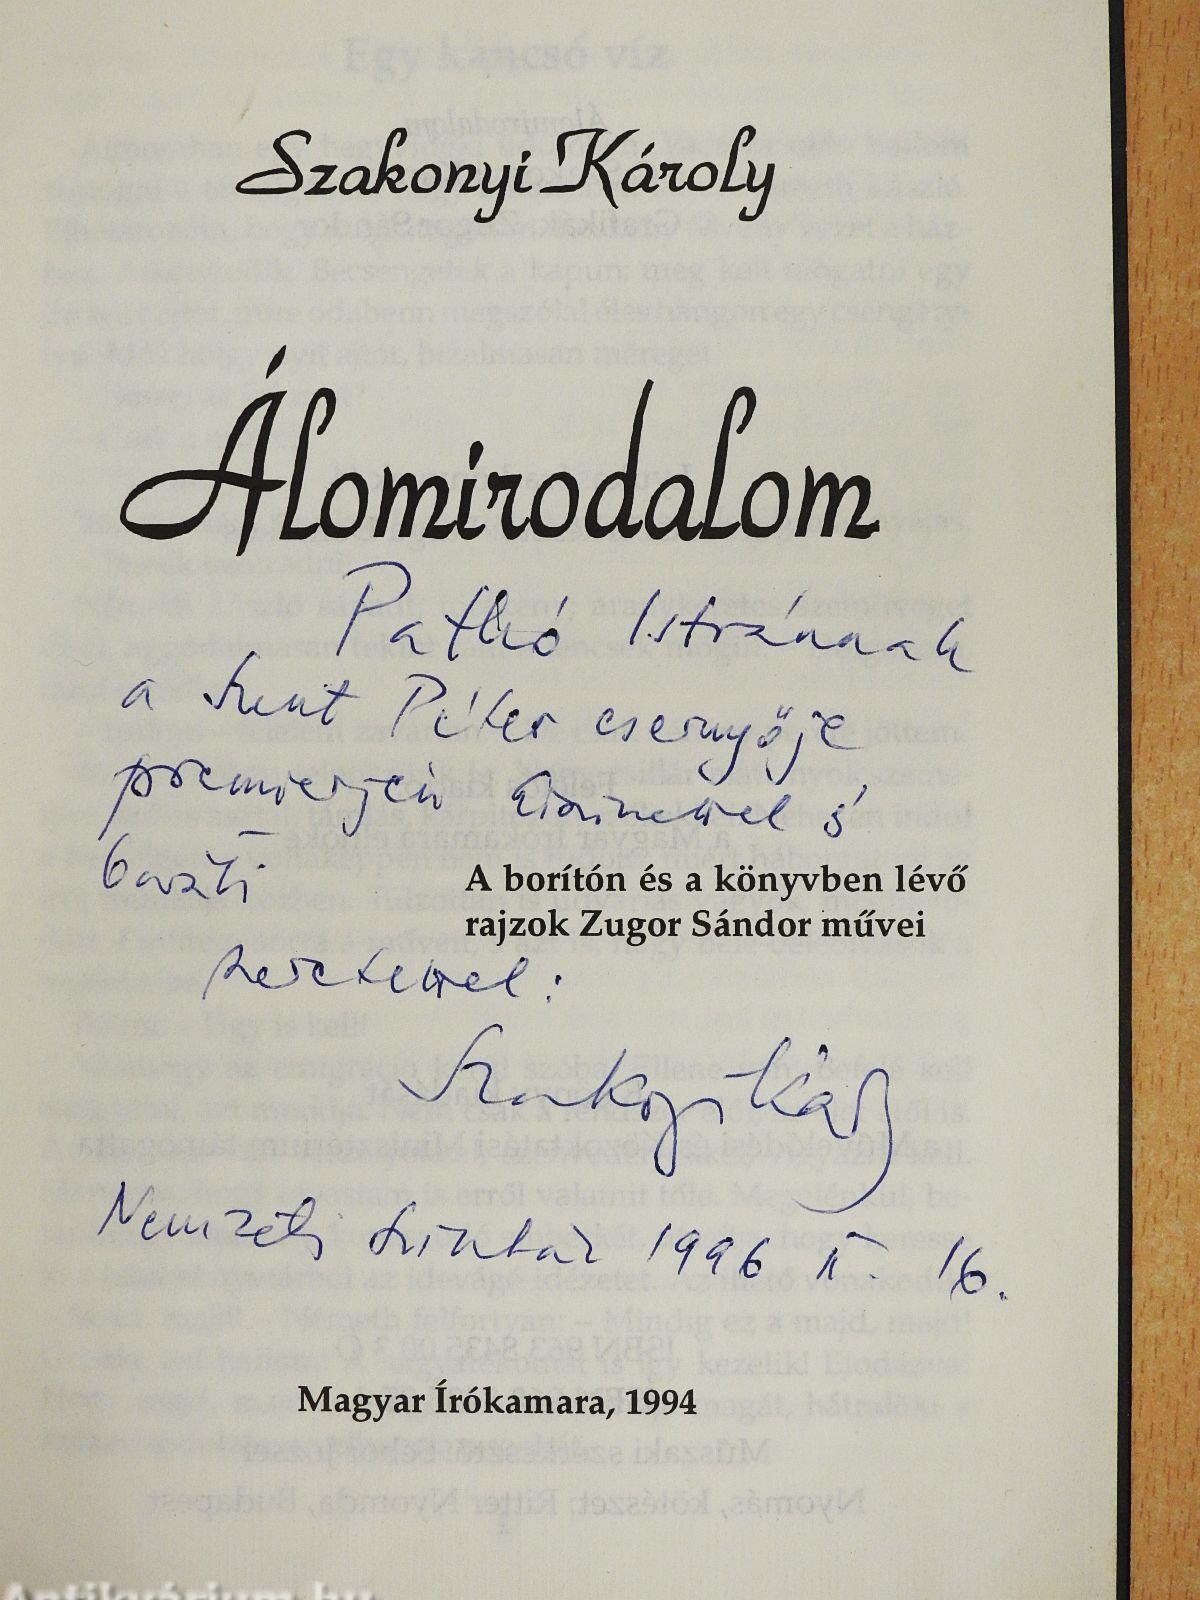 Szakonyi Károly
Álomirodalom
Pathó Istvánnak
a Szent Péter esernyője
premierjén őszinte
baráti
A borítón és a könyvben lévő
rajzok Zugor Sándor művei
szeretettel:
Szakonyi Károly
Nemzeti Színház 1996 II. 16.
Magyar Írókamara, 1994
Antikvárium.hu